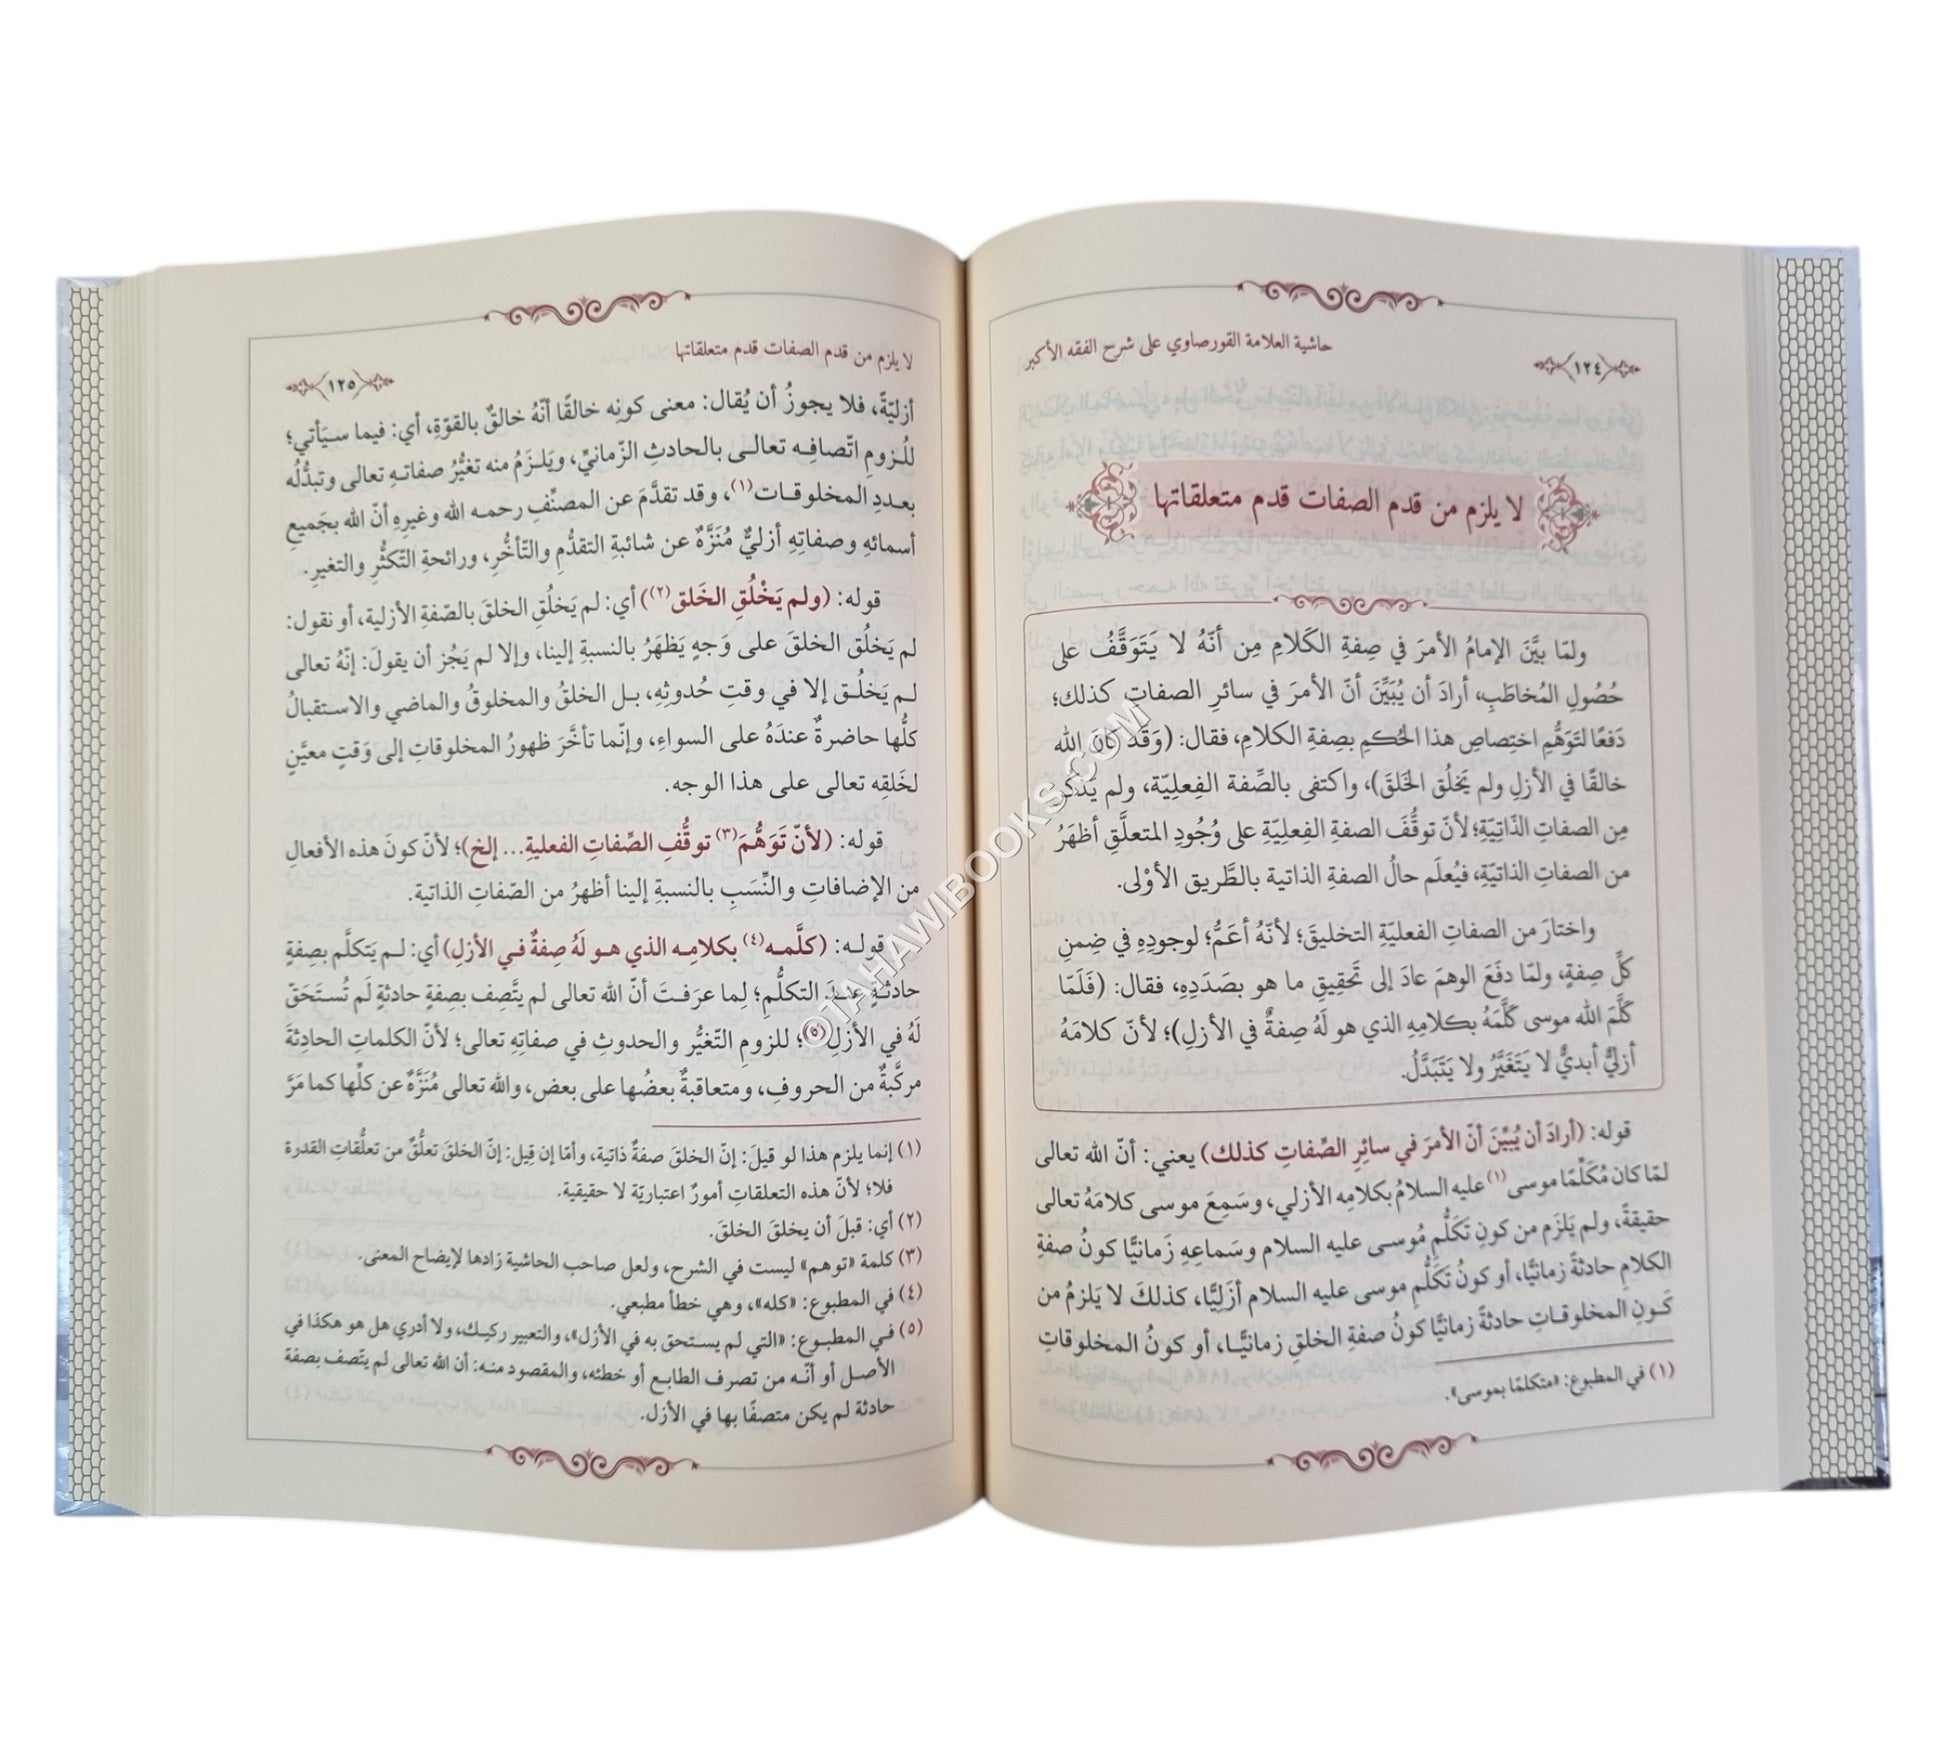 حاشية العلامة القورصاوي على شرح الفقه الأكبر
١٢٤
لا يلزم من قدم الصفات قدم متعلقاتها
ولمّا بيَّنَ الإمامُ الأمرَ في صِفةِ الكَلامِ مِن أنّهُ لا يَتَوَقَّفُ على
حُصُولِ المُخاطَبِ، أرادَ أن يُبَيِّنَ أنّ الأمرَ في سائرِ الصفاتِ كذلك؛
دَفعًا لتَوَهُّمِ اختِصاصِ هذا الحُكمِ بصِفةِ الكلامِ، فقال: (وَقَد كانَ الله
خالقًا في الأزلِ ولم يَخلُق الخَلقَ)، واكتفى بالصِّفة الفِعلِيّة، ولم يَذكُر
مِن الصفاتِ الذّاتِيّةِ؛ لأنّ توقُّفَ الصفةِ الفِعلِيّةِ على وُجُودِ المتعلَّقِ أظهَرُ
من الصفاتِ الذاتيّةِ، فيُعلَم حالُ الصفةِ الذاتية بالطَّريق الأوْلى.
واختارَ من الصفاتِ الفعليّةِ التخليقَ؛ لأنّهُ أعَمُّ؛ لوجودِهِ في ضِمنِ
كلِّ صِفةٍ، ولمّا دفَعَ الوهمَ عادَ إلى تَحقِيقِ ما هو بصَدَدِهِ، فقال: (فَلَمّا
كَلَّمَ الله موسى كَلَّمَهُ بكلامِهِ الذي هو لَهُ صِفةٌ في الأزلِ)؛ لأنّ كلامَهُ
أزليٌّ أبديٌّ لا يَتَغَيَّرُ ولا يَتَبَدَّلُ.
قوله: (أرادَ أن يُبيِّنَ أنّ الأمرَ في سائِرِ الصِّفاتِ كذلك) يعني: أنّ الله تعالى
لمّا كان مُكَلِّمًا موسى(١) عليه السلامُ بكلامِه الأزلي، وسَمِعَ موسى كلامَهُ تعالى
حقيقةً، ولم يَلزَم من كونِ تَكَلُّمِ مُوسى عليه السلام وسَماعِهِ زَمانيًّا كونُ صفةِ
الكلامِ حادثةً زمانيًّا، أو كونُ تَكَلُّمِ موسى عليه السلام أزَلِيًّا، كذلكَ لا يَلزمُ من
كَونِ المخلوقاتِ حادثةً زمانيًّا كونُ صفةِ الخلقِ زمانيًّا، أو كونُ المخلوقاتِ
(١) في المطبوع: «متكلمًا بموسى».
لا يلزم من قدم الصفات قدم متعلقاتها
١٢٥
أزليّةً، فلا يجوزُ أن يُقال: معنى كونِه خالقًا أنّهُ خالقٌ بالقوّةِ، أي: فيما سيَأتي؛
للُزومِ اتّصافِه تعالى بالحادثِ الزّمانيِّ، ويَلزَمُ منه تغيُّرُ صفاتهِ تعالى وتبدُّلُه
بعددِ المخلوقات(١)، وقد تقدَّمَ عن المصنِّفِ رحمه الله وغيرِهِ أنّ الله بجَميعِ
أسمائهِ وصفاتِهِ أزليٌّ مُنَزَّهٌ عن شائبةِ التقدُّمِ والتّأخُّرِ، ورائحةِ التّكثُّرِ والتغيرِ.
قوله: (ولم يَخْلُقِ الخَلق(٢)) أي: لم يَخلُقِ الخلقَ بالصّفةِ الأزلية، أو نقول:
لم يَخلُق الخلقَ على وَجهٍ يَظهَرُ بالنسبةِ إلينا، وإلا لم يَجُز أن يقولَ: إنّهُ تعالى
لم يَخلُق إلا في وقتِ حُدوثِهِ، بل الخلقُ والمخلوقُ والماضي والاستقبالُ
كلُّها حاضرةٌ عندَهُ على السواءِ، وإنّما تأخَّرَ ظهورُ المخلوقاتِ إلى وَقتٍ معيَّنٍ
لخَلقِه تعالى على هذا الوجه.
قوله: (لأنّ تَوَهُّمَ(٣) توقُّفِ الصِّفاتِ الفعليةِ... إلخ)؛ لأنّ كونَ هذه الأفعالِ
من الإضافاتِ والنِّسَبِ بالنسبةِ إلينا أظهرُ من الصّفاتِ الذاتية.
قوله: (كلَّمه(٤) بكلامِه الذي هو لَهُ صِفةٌ في الأزلِ) أي: لم يَتكلَّم بصِفةٍ
حادثةٍ عندَ التكلُّمِ؛ لِما عرَفتَ أنّ الله تعالى لم يتَّصِف بصِفةٍ حادثةٍ لَم تُستَحَقّ
لَهُ في الأزلِ(٥)؛ للزومِ التّغيُّر والحدوثِ في صفاتِهِ تعالى؛ لأنّ الكلماتِ الحادِثةَ
مركَّبةٌ من الحروفِ، ومتعاقبةٌ بعضُها على بعض، والله تعالى مُنَزَّهٌ عن كلِّها كما مَرَّ
(١) إنما يلزم هذا لو قيلَ: إنّ الخلقَ صفةٌ ذاتية، وأمّا إن قِيل: إنّ الخلقَ تعلُّقٌ من تعلُّقاتِ القدرة
فلا؛ لأنّ هذه التعلقاتِ أمورٌ اعتباريّة لا حقيقية.
(٢) أي: قبلَ أن يخلقَ الخلقَ.
(٣) كلمة «توهم» ليست في الشرح، ولعل صاحب الحاشية زادها لإيضاح المعنى.
(٤) في المطبوع: «كله»، وهي خطأ مطبعي.
(٥) في المطبوع: «التي لم يستحق به في الأزل»، والتعبير ركيك، ولا أدري هل هو هكذا في
الأصل أو أنّه من تصرف الطابع أو خطئه، والمقصود منه: أن الله تعالى لم يتّصف بصفة
حادثة لم يكن متصفًا بها في الأزل.
©TAHAWIBOOKS.COM